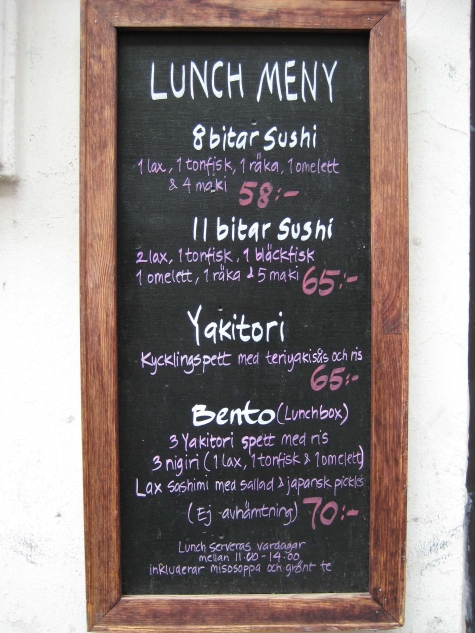 LUNCH MENY
8 bitar Sushi
1 lax, 1 tonfisk, 1 räka, 1 omelett
& 4 maki 58:-
11 bitar Sushi
2 lax, 1 tonfisk, 1 bläckfisk
1 omelett, 1 räka & 5 maki 65:-
Yakitori
Kycklingspett med teriyakisås och ris
65:-
Bento (Lunchbox)
3 Yakitori spett med ris
3 nigiri (1 lax, 1 tonfisk & 1 omelett)
Lax sashimi med sallad & japansk pickles
(Ej avhämtning) 70:-
Lunch serveras vardagar
mellan 11.00-14.00
inkluderar misosoppa och grönt te